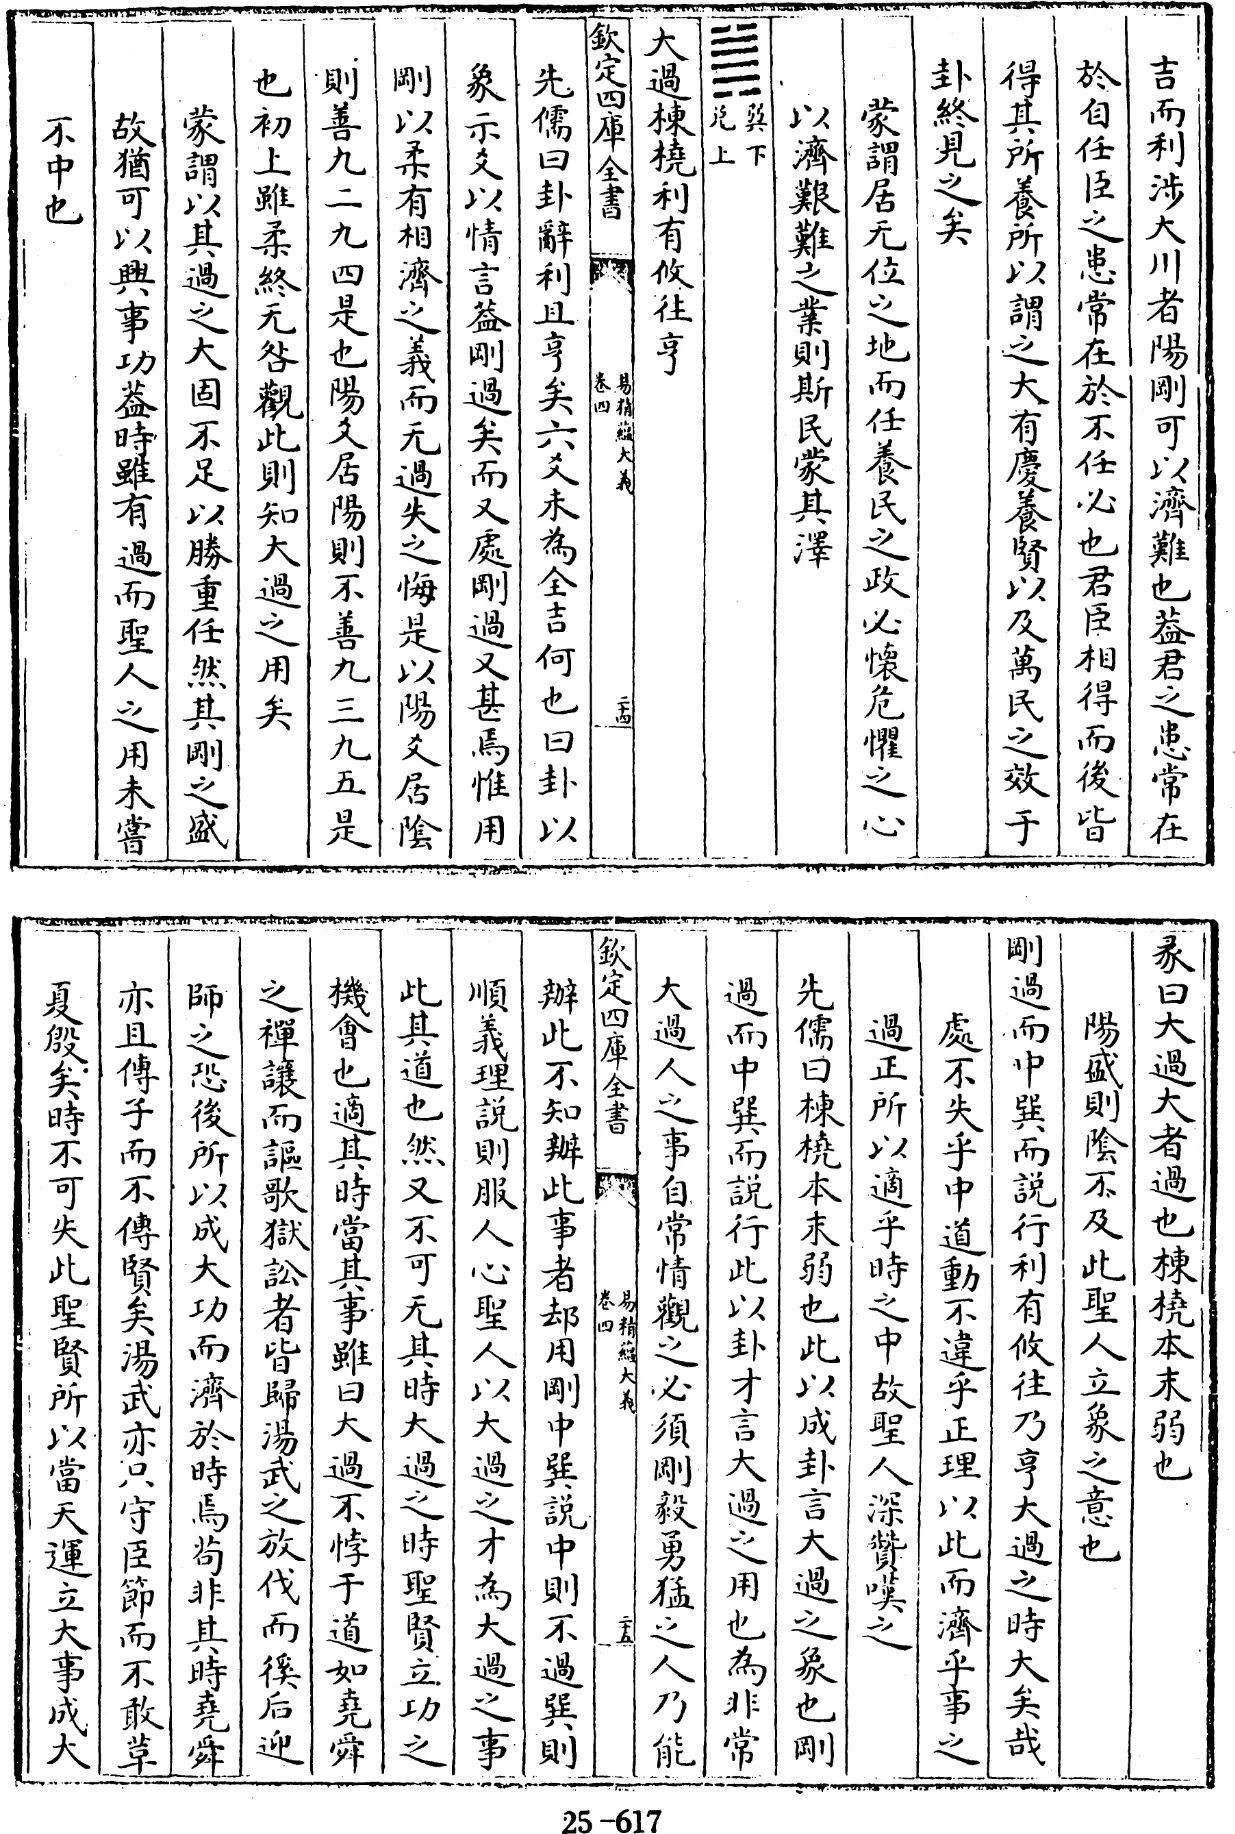 吉而利涉大川者陽剛可以濟難也葢君之患常在
於自任臣之患常在於不任必也君臣相得而後皆
得其所養所以謂之大有慶養賢以及萬民之效于
卦終見之矣
蒙謂居无位之地而任養民之政必懷危懼之心
以濟艱難之業則斯民蒙其澤
䷛巽下
兌上
大過棟橈利有攸往亨
欽定四庫全書
易精蘊大義
卷四
二十四
先儒曰卦辭利且亨矣六爻未為全吉何也曰卦以
象示爻以情言葢剛過矣而又處剛過又甚焉惟用
剛以柔有相濟之義而无過失之悔是以陽爻居陰
則善九二九四是也陽爻居陽則不善九三九五是
也初上雖柔終无咎觀此則知大過之用矣
蒙謂以其過之大固不足以勝重任然其剛之盛
故猶可以興事功葢時雖有過而聖人之用未嘗
不中也
彖曰大過大者過也棟橈本末弱也
陽盛則陰不及此聖人立象之意也
剛過而中巽而説行利有攸往乃亨大過之時大矣哉
處不失乎中道動不違乎正理以此而濟乎事之
過正所以適乎時之中故聖人深贊嘆之
先儒曰棟橈本末弱也此以成卦言大過之象也剛
過而中巽而説行此以卦才言大過之用也為非常
大過人之事自常情觀之必須剛毅勇猛之人乃能
欽定四庫全書
易精蘊大義
卷四
二十五
辦此不知辦此事者却用剛中巽説中則不過巽則
順義理説則服人心聖人以大過之才為大過之事
此其道也然又不可无其時大過之時聖賢立功之
機會也適其時當其事雖曰大過不悖于道如堯舜
之禪讓而謳歌獄訟者皆歸湯武之放伐而徯后迎
師之恐後所以成大功而濟於時焉茍非其時堯舜
亦且傳子而不傳賢矣湯武亦只守臣節而不敢草
夏殷矣時不可失此聖賢所以當天運立大事成大
25-617